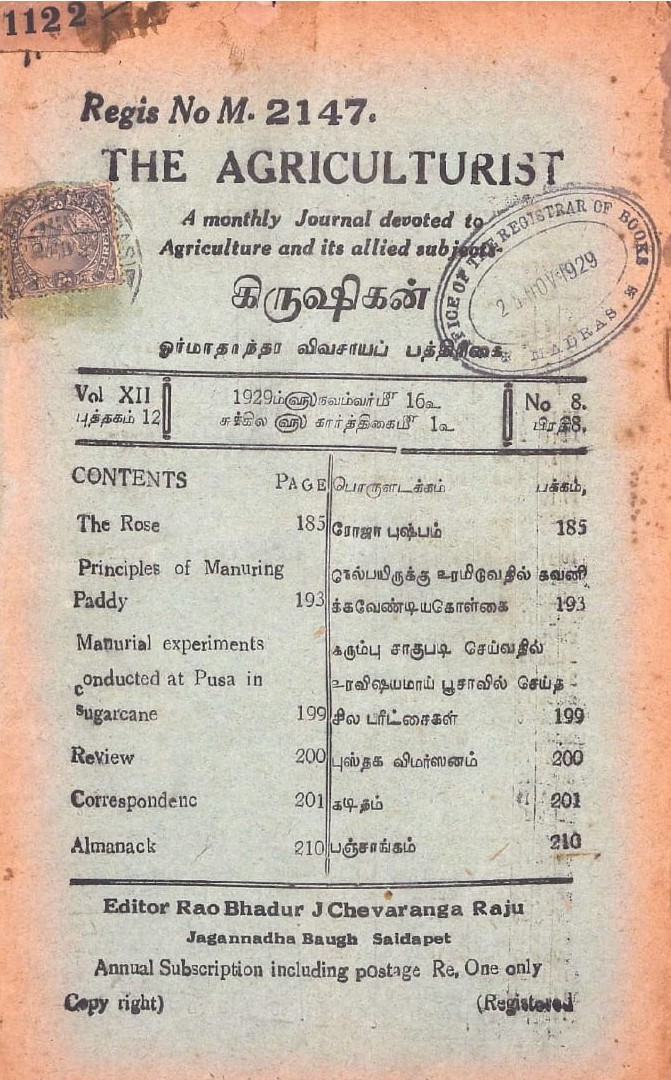 1122
Regis No M. 2147.
THE AGRICULTURIST
A monthly Journal devoted to
Agriculture and its allied subjects-
OFFICE OF THE REGISTRAR OF BOOKS
NOV 1929
MADRAS
கிருஷிகன்
ஓர்மாதாந்தா விவசாயப் பத்திரிகை
Vol XII
புத்தகம் 12
1929ம்௵நவம்வர்௴ 16௳
சுக்கில ௵ கார்த்திகை௴ 1௳
No 8.
பிரதி8.
CONTENTS PAGE
பொருளடக்கம் பக்கம்,
The Rose 185
ரோஜா புஷ்பம் 185
Principles of Manuring
Paddy 193
நெல்பயிருக்கு உரமிடுவதில் கவனி
க்கவேண்டியகொள்கை 193
Manurial experiments
conducted at Pusa in
sugarcane 199
கரும்பு சாகுபடி செய்வதில்
உரவிஷயமாய் பூசாவில் செய்த -
சில பரீட்சைகள் 199
Review 200
புஸ்தக விமர்ஸனம் 200
Correspondenc 201
கடிதம் 201
Almanack 210
பஞ்சாங்கம் 210
Editor Rao Bhadur J Chevaranga Raju
Jagannadha Baugh Saidapet
Annual Subscription including postage Re, One only
Copy right)
(Registered